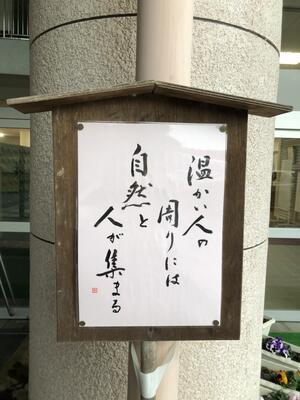 温かい人の
周りには
自然と
人が集まる